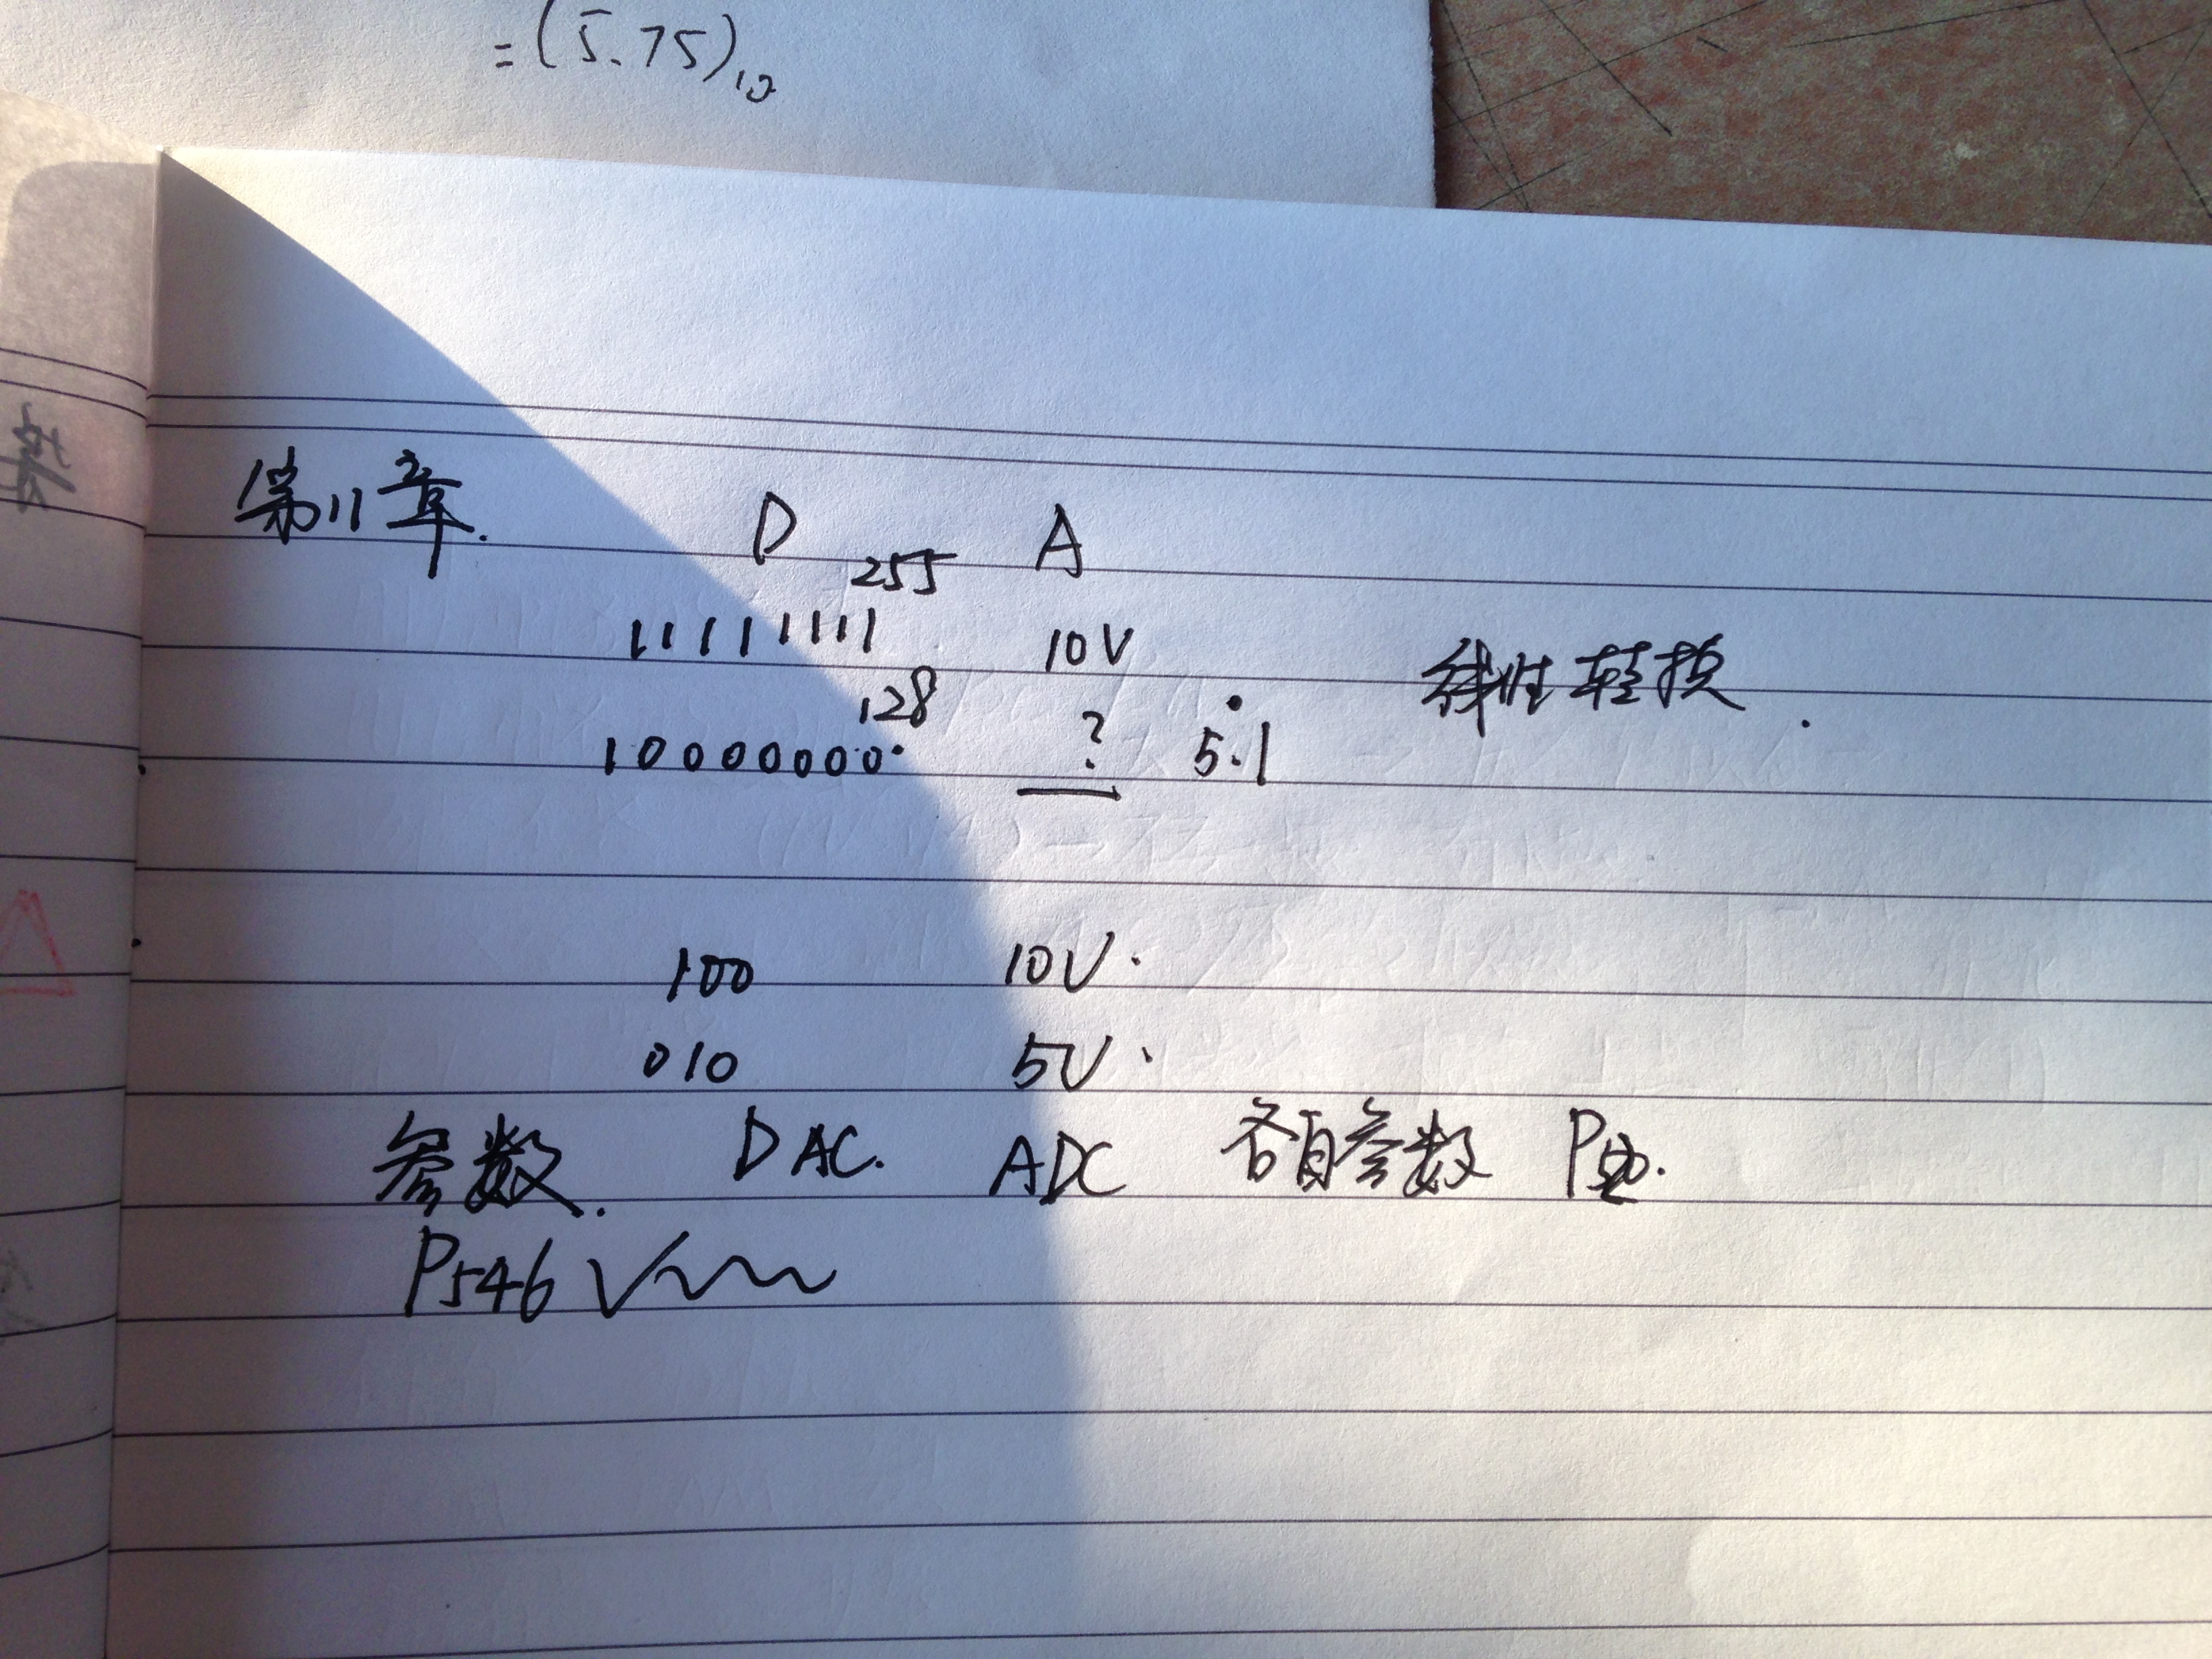 =(5.75)10
第11章.
D A
255
11111111 10V
128
线性转换.
10000000 ? 5.1
100 10V.
010 5V.
参数. DAC. ADC 各自参数
P546